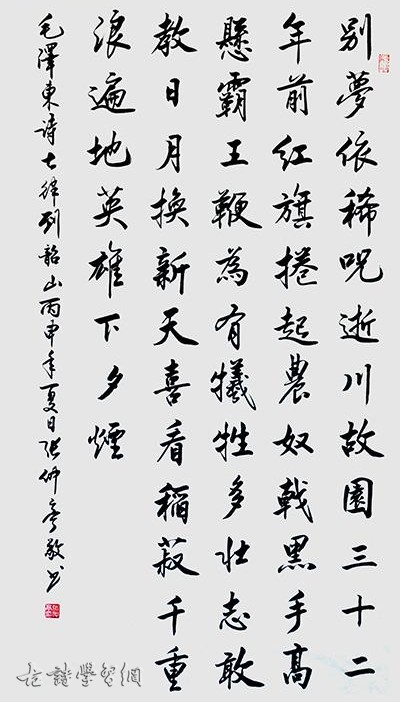 别夢依稀呪逝川故園三十二
年前紅旗捲起農奴戟黑手高
懸霸王鞭為有犧牲多壮志敢
教日月換新天喜看稻菽千重
浪遍地英雄下夕煙
毛澤東诗七律到韶山丙申年夏日張仲亭敬书